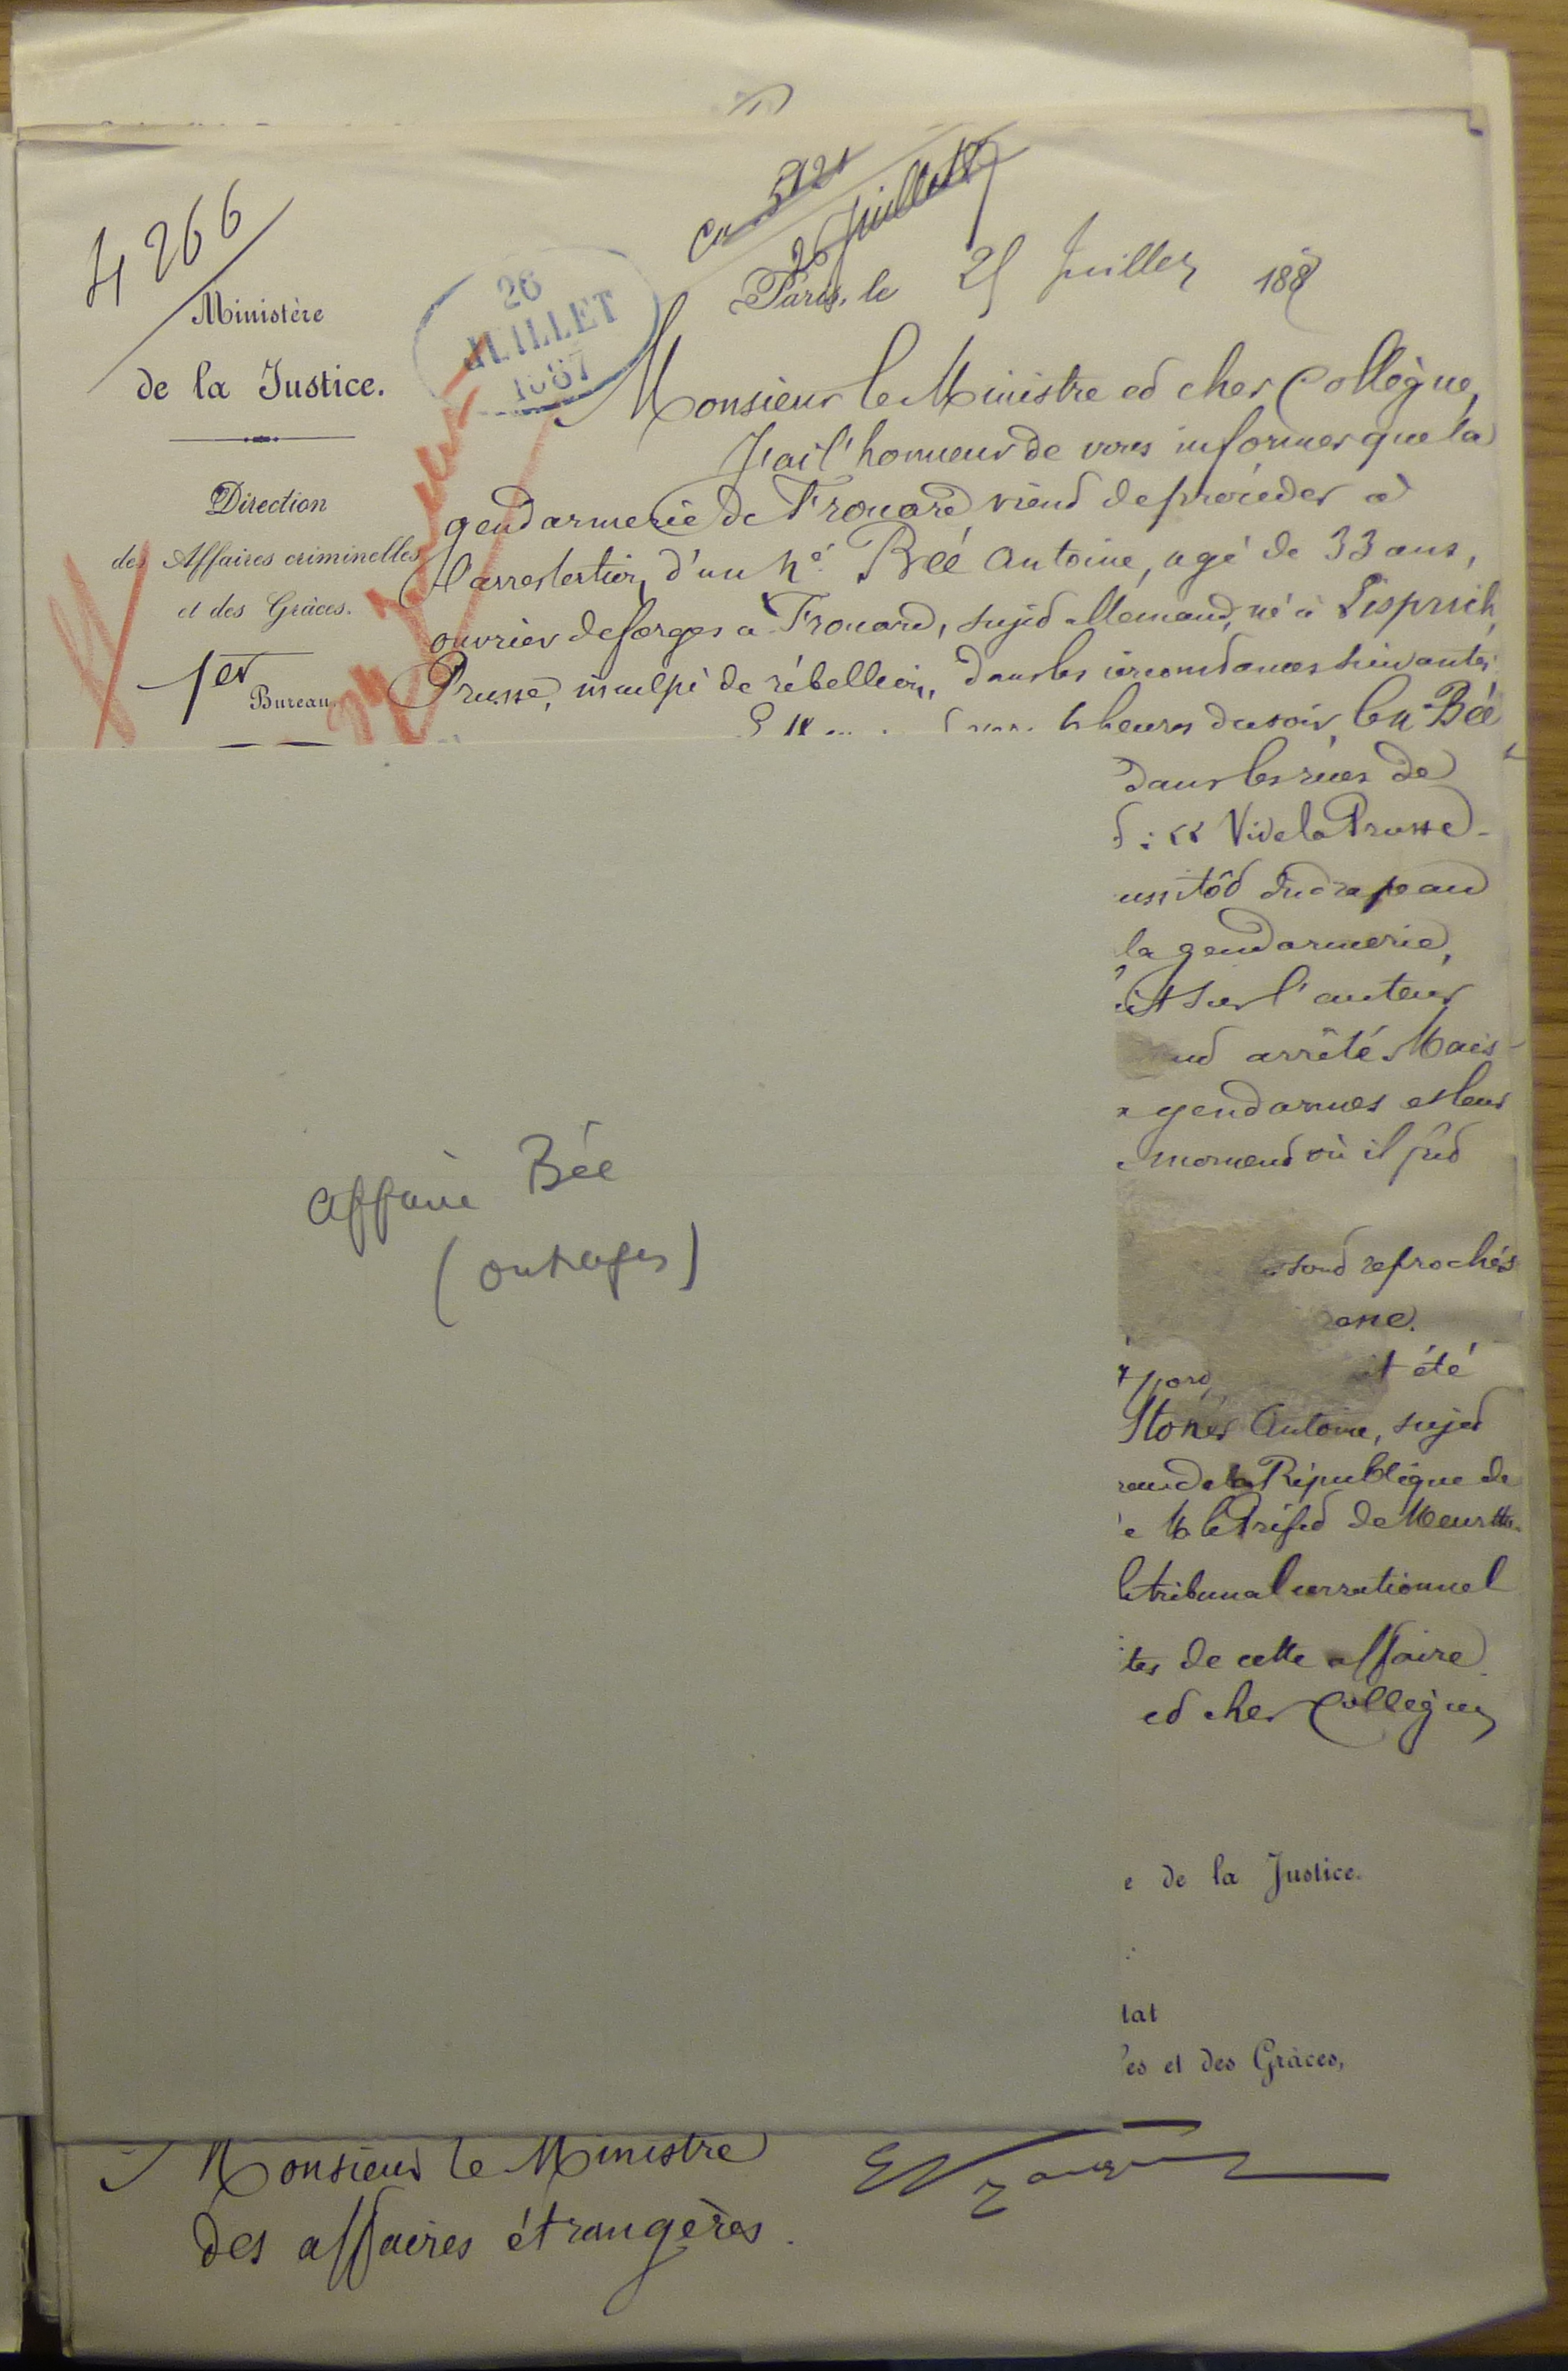 4266
Ministère
de la Justice.
Direction
des Affaires criminelles
et des Grâces.
1er Bureau
26
JUILLET
1887
26 Juillet
Paris, le 25 Juillet 188
Monsieur le Ministre et cher Collègue,
J'ai l'honneur de vous informer que la
gendarmerie de Frouard vient de procéder à
l'arrestation d'un né Béé Antoine, agé de 33 ans,
ouvrier de forges à Frouard, sujet allemand, né à
Prusse, inculpé de rébellion, dans les circonstances suivantes
heures du soir, le n Béé
dans les rues de
: « Vive la Prusse
ussitôt du drapeau
la gendarmerie,
sur l'auteur
arrêté. Mais
gendarmes et leur
moment où il fut
sont reprochés
it été
Antoine, sujet
de la République de
M le Préfet de Meurthe
le tribunal correctionnel
tes de cette affaire
et cher Collègue,
e de la Justice.
tat
es et des Grâces,
Affaire Bée
(outrages)
Monsieur le Ministre
des affaires étrangères.